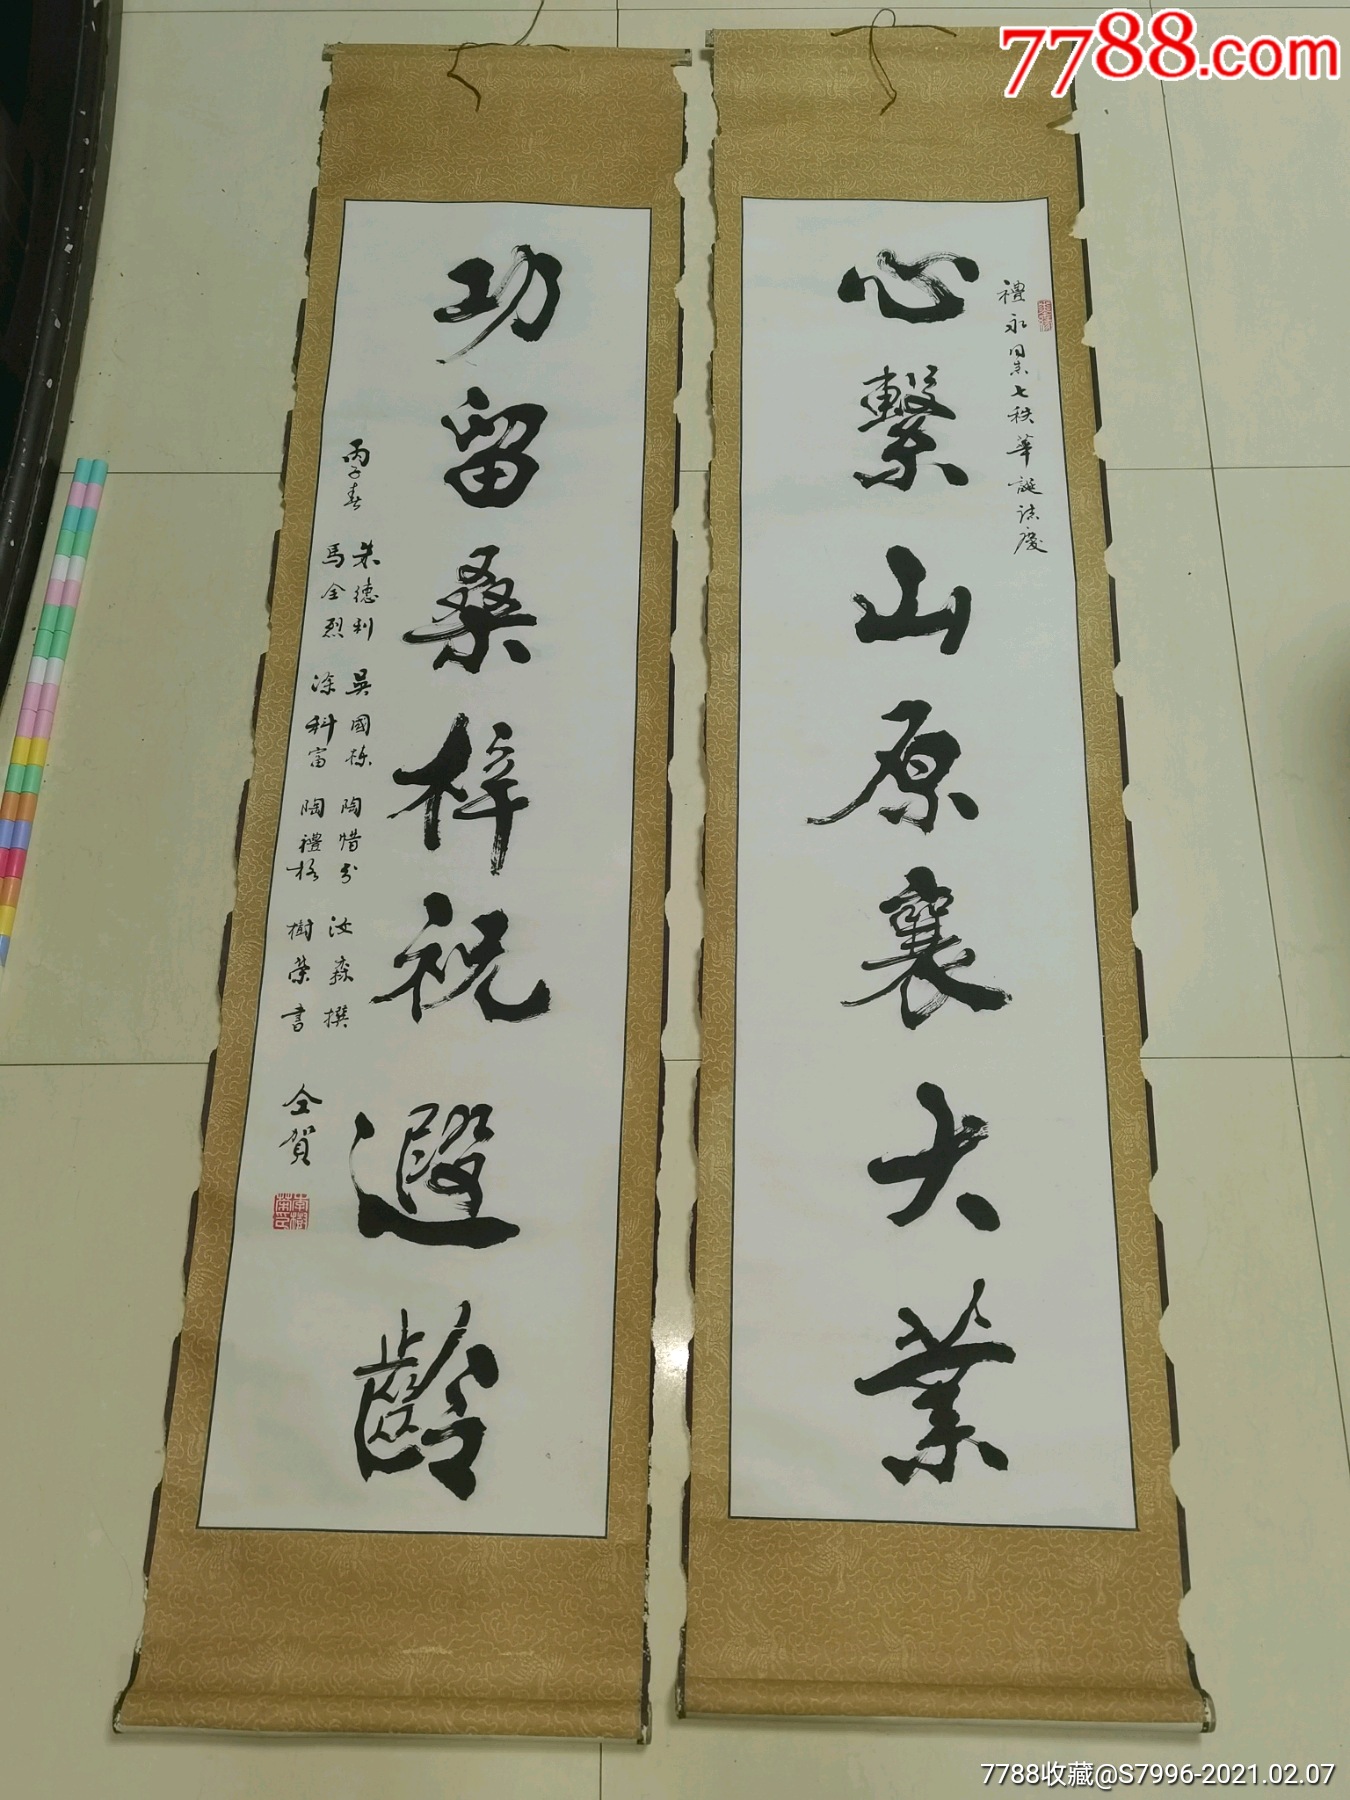 7788.com
禮永同業七秩華誕誌慶
心繫山原襄大業
功留桑梓祝遐齡
丙子春
朱德利 吳國栋 陶惜分 汝森撰
馬全烈 涂科富 陶禮格 樹榮書
仝賀
7788收藏@S7996-2021.02.07